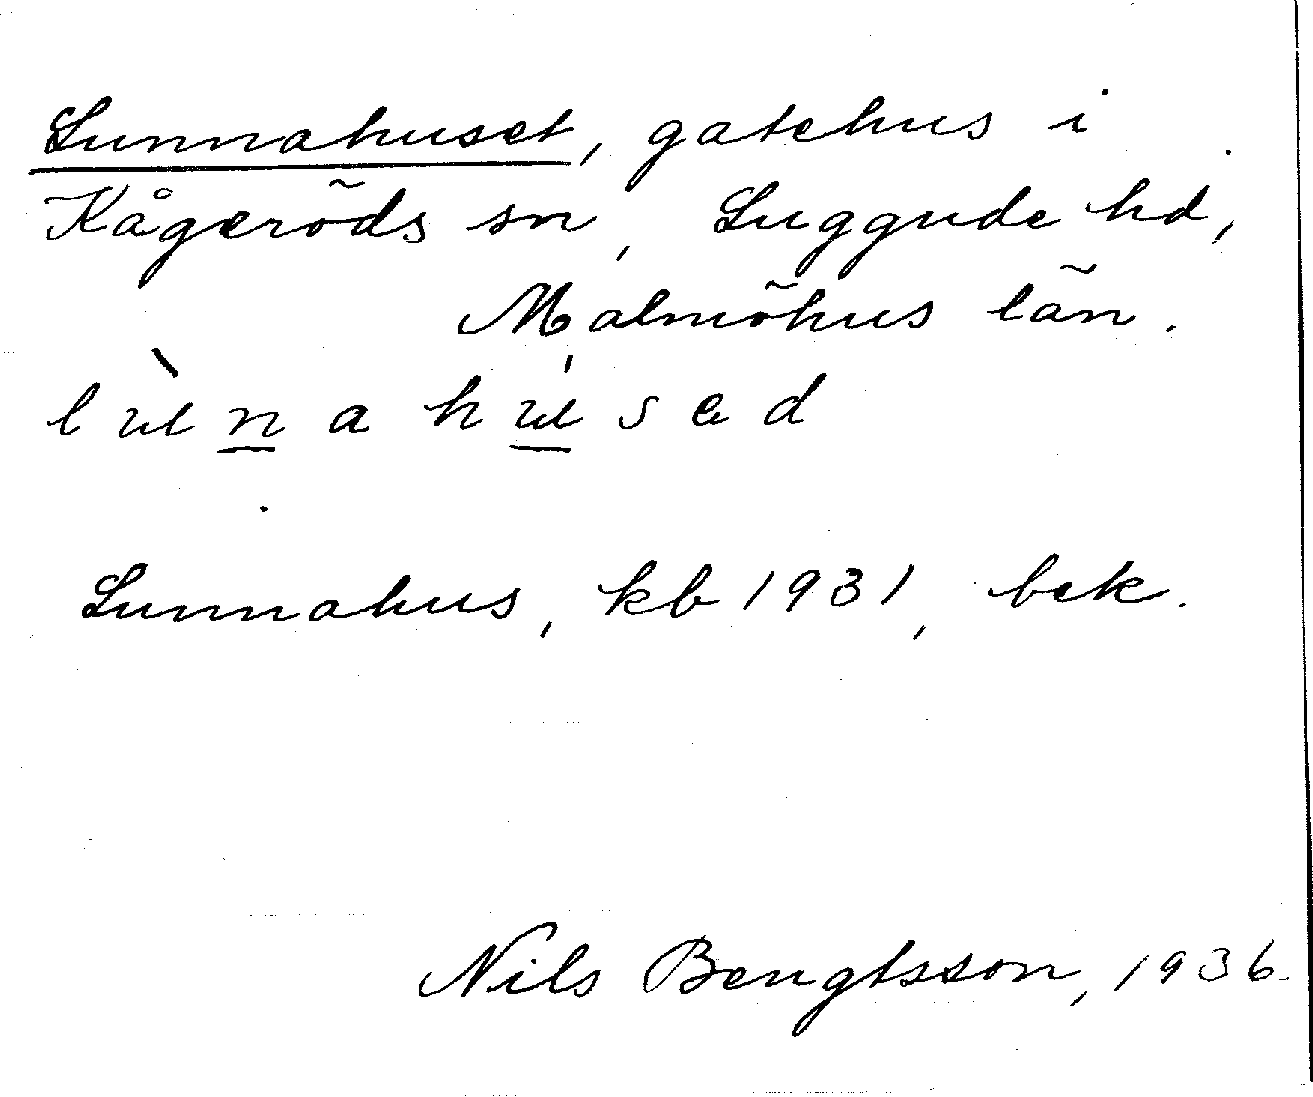 Lunnahuset, gatehus i
Kågeröds sn, Luggude hd,
Malmöhus län.
lùnahúsed
Lunnahus, kb 1931, bek.
Nils Bengtsson, 1936